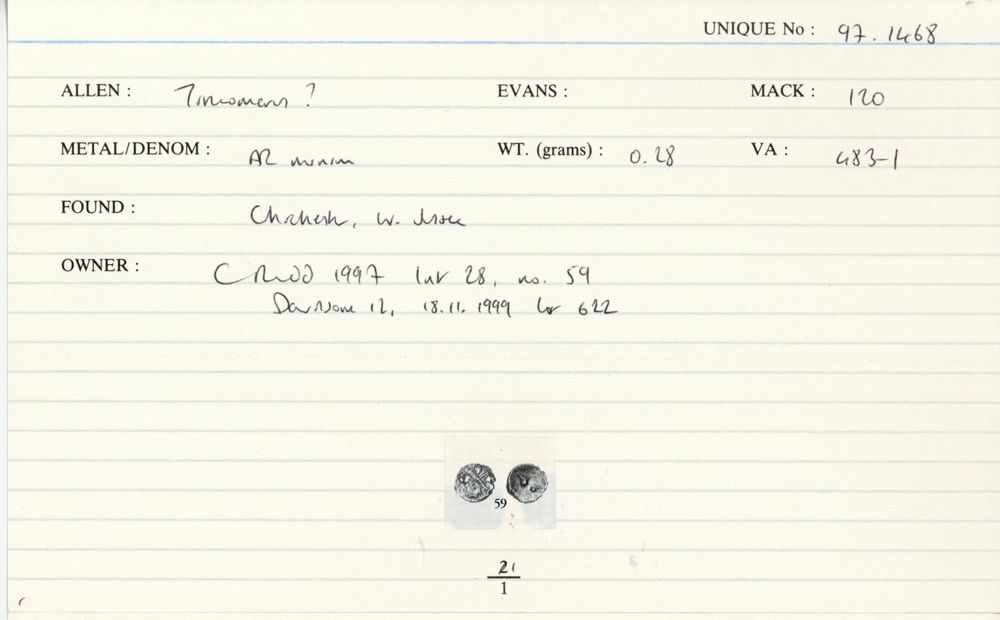 UNIQUE No : 97.1468
ALLEN : Tincomarus ? EVANS : MACK : 120
METAL/DENOM : AR minim WT. (grams) : 0.28 VA : 483-1
FOUND : Chichester, W.
OWNER : C Rudd 1997 list 28, no. 59
12, 18.11.1999 lot 622
59
21
1